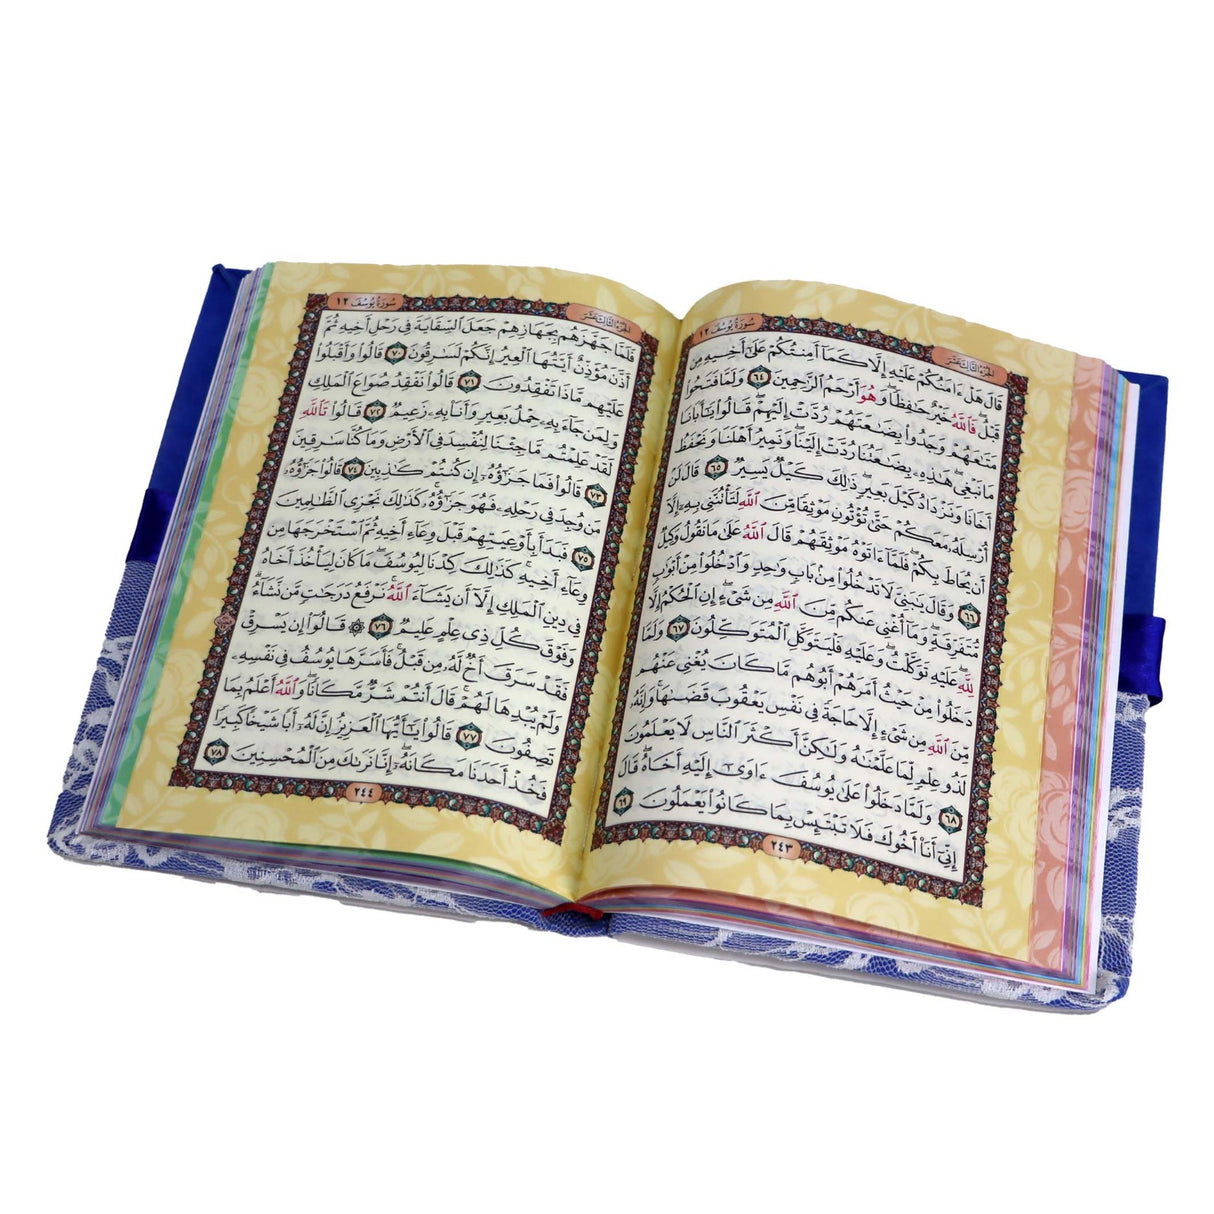 الجزء الثالث عشر
سورة يوسف ١٢
قَالَ هَلْ ءَامَنُكُمْ عَلَيْهِ إِلَّا كَمَآ أَمِنتُكُمْ عَلَىٰٓ أَخِيهِ مِن
قَبْلُ فَٱللَّهُ خَيْرٌ حَٰفِظًا وَهُوَ أَرْحَمُ ٱلرَّٰحِمِينَ ٦٤ وَلَمَّا فَتَحُوا۟
مَتَٰعَهُمْ وَجَدُوا۟ بِضَٰعَتَهُمْ رُدَّتْ إِلَيْهِمْ قَالُوا۟ يَٰٓأَبَانَا
مَا نَبْغِى هَٰذِهِۦ بِضَٰعَتُنَا رُدَّتْ إِلَيْنَا وَنَمِيرُ أَهْلَنَا وَنَحْفَظُ
أَخَانَا وَنَزْدَادُ كَيْلَ بَعِيرٍ ذَٰلِكَ كَيْلٌ يَسِيرٌ ٦٥ قَالَ لَنْ
أُرْسِلَهُۥ مَعَكُمْ حَتَّىٰ تُؤْتُونِ مَوْثِقًا مِّنَ ٱللَّهِ لَتَأْتُنَّنِى بِهِۦٓ إِلَّآ
أَن يُحَاطَ بِكُمْ فَلَمَّآ ءَاتَوْهُ مَوْثِقَهُمْ قَالَ ٱللَّهُ عَلَىٰ مَا نَقُولُ وَكِيلٌ
٦٦ وَقَالَ يَٰبَنِىَّ لَا تَدْخُلُوا۟ مِنۢ بَابٍ وَٰحِدٍ وَٱدْخُلُوا۟ مِنْ أَبْوَٰبٍ
مُّتَفَرِّقَةٍ وَمَآ أُغْنِى عَنكُم مِّنَ ٱللَّهِ مِن شَىْءٍ إِنِ ٱلْحُكْمُ إِلَّا
لِلَّهِ عَلَيْهِ تَوَكَّلْتُ وَعَلَيْهِ فَلْيَتَوَكَّلِ ٱلْمُتَوَكِّلُونَ ٦٧ وَلَمَّا
دَخَلُوا۟ مِنْ حَيْثُ أَمَرَهُمْ أَبُوهُم مَّا كَانَ يُغْنِى عَنْهُم
مِّنَ ٱللَّهِ مِن شَىْءٍ إِلَّا حَاجَةً فِى نَفْسِ يَعْقُوبَ قَضَىٰهَا وَإِنَّهُۥ
لَذُو عِلْمٍ لِّمَا عَلَّمْنَٰهُ وَلَٰكِنَّ أَكْثَرَ ٱلنَّاسِ لَا يَعْلَمُونَ
٦٨ وَلَمَّا دَخَلُوا۟ عَلَىٰ يُوسُفَ ءَاوَىٰٓ إِلَيْهِ أَخَاهُ قَالَ
إِنِّىٓ أَنَا۠ أَخُوكَ فَلَا تَبْتَئِسْ بِمَا كَانُوا۟ يَعْمَلُونَ ٦٩
٢٤٣
الجزء الثالث عشر
سورة يوسف ١٢
فَلَمَّا جَهَّزَهُم بِجَهَازِهِمْ جَعَلَ ٱلسِّقَايَةَ فِى رَحْلِ أَخِيهِ ثُمَّ
أَذَّنَ مُؤَذِّنٌ أَيَّتُهَا ٱلْعِيرُ إِنَّكُمْ لَسَٰرِقُونَ ٧٠ قَالُوا۟ وَأَقْبَلُوا۟
عَلَيْهِم مَّاذَا تَفْقِدُونَ ٧١ قَالُوا۟ نَفْقِدُ صُوَاعَ ٱلْمَلِكِ
وَلِمَن جَآءَ بِهِۦ حِمْلُ بَعِيرٍ وَأَنَا۠ بِهِۦ زَعِيمٌ ٧٢ قَالُوا۟ تَٱللَّهِ
لَقَدْ عَلِمْتُم مَّا جِئْنَا لِنُفْسِدَ فِى ٱلْأَرْضِ وَمَا كُنَّا سَٰرِقِينَ
٧٣ قَالُوا۟ فَمَا جَزَٰٓؤُهُۥٓ إِن كُنتُمْ كَٰذِبِينَ ٧٤ قَالُوا۟ جَزَٰٓؤُهُۥ
مَن وُجِدَ فِى رَحْلِهِۦ فَهُوَ جَزَٰٓؤُهُۥ كَذَٰلِكَ نَجْزِى ٱلظَّٰلِمِينَ
٧٥ فَبَدَأَ بِأَوْعِيَتِهِمْ قَبْلَ وِعَآءِ أَخِيهِ ثُمَّ ٱسْتَخْرَجَهَا مِن
وِعَآءِ أَخِيهِ كَذَٰلِكَ كِدْنَا لِيُوسُفَ مَا كَانَ لِيَأْخُذَ أَخَاهُ
فِى دِينِ ٱلْمَلِكِ إِلَّآ أَن يَشَآءَ ٱللَّهُ نَرْفَعُ دَرَجَٰتٍ مَّن نَّشَآءُ
وَفَوْقَ كُلِّ ذِى عِلْمٍ عَلِيمٌ ٧٦ ۞ قَالُوٓا۟ إِن يَسْرِقْ
فَقَدْ سَرَقَ أَخٌ لَّهُۥ مِن قَبْلُ فَأَسَرَّهَا يُوسُفُ فِى نَفْسِهِۦ
وَلَمْ يُبْدِهَا لَهُمْ قَالَ أَنتُمْ شَرٌّ مَّكَانًا وَٱللَّهُ أَعْلَمُ بِمَا
تَصِفُونَ ٧٧ قَالُوا۟ يَٰٓأَيُّهَا ٱلْعَزِيزُ إِنَّ لَهُۥٓ أَبًا شَيْخًا كَبِيرًا
فَخُذْ أَحَدَنَا مَكَانَهُۥٓ إِنَّا نَرَىٰكَ مِنَ ٱلْمُحْسِنِينَ ٧٨
٢٤٤